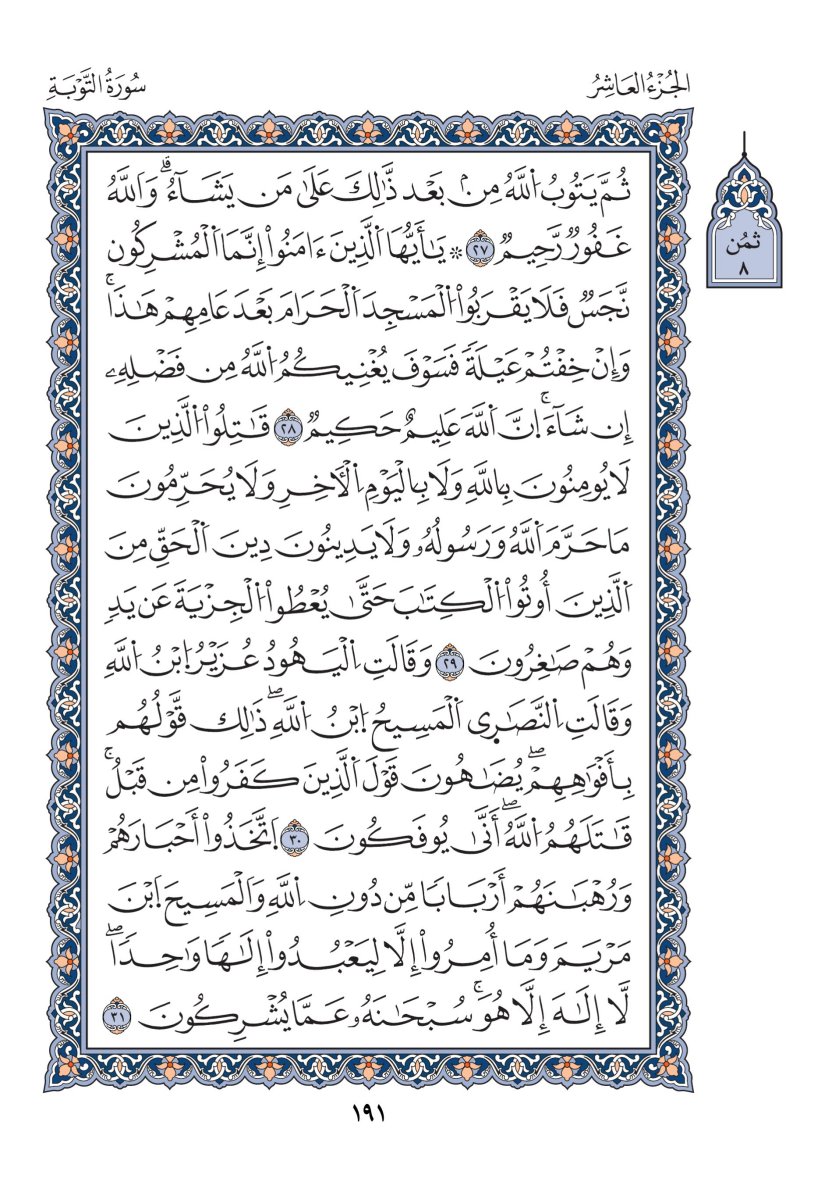 الجُزْءُ العَاشِرُ
سُورَةُ التَّوْبَةِ
ثُمَّ يَتُوبُ اُ۬للَّهُ مِنۢ بَعْدِ ذَٰلِكَ عَلَىٰ مَن يَشَآءُۗ وَاللَّهُ
غَفُورٞ رَّحِيمٞ ٢٧ ۞ يَٰٓأَيُّهَا اَ۬لَّذِينَ ءَامَنُوٓاْ إِنَّمَا اَ۬لْمُشْرِكُونَ
نَجَسٞ فَلَا يَقْرَبُواْ اُ۬لْمَسْجِدَ اَ۬لْحَرَامَ بَعْدَ عَامِهِمْ هَٰذَاۚ
وَإِنْ خِفْتُمْ عَيْلَةٗ فَسَوْفَ يُغْنِيكُمُ اُ۬للَّهُ مِن فَضْلِهِۦٓ
إِن شَآءَۚ ا۪نَّ اَ۬للَّهَ عَلِيمٌ حَكِيمٞ ٢٨ قَٰتِلُواْ اُ۬لَّذِينَ
لَا يُومِنُونَ بِاللَّهِ وَلَا بِالْيَوْمِ اِ۬لْأٓخِرِ وَلَا يُحَرِّمُونَ
مَا حَرَّمَ اَ۬للَّهُ وَرَسُولُهُۥ وَلَا يَدِينُونَ دِينَ اَ۬لْحَقِّ مِنَ
اَ۬لَّذِينَ أُوتُواْ اُ۬لْكِتَٰبَ حَتَّىٰ يُعْطُواْ اُ۬لْجِزْيَةَ عَنْ يَدٖ
وَهُمْ صَٰغِرُونَ ٢٩ وَقَالَتِ اِ۬لْيَهُودُ عُزَيْرُ اُ۪بْنُ اُ۬للَّهِ
وَقَالَتِ اِ۬لنَّصَٰرَى اَ۬لْمَسِيحُ اُ۪بْنُ اُ۬للَّهِۖ ذَٰلِكَ قَوْلُهُم
بِأَفْوَٰهِهِمْۖ يُضَٰهُونَ قَوْلَ اَ۬لَّذِينَ كَفَرُواْ مِن قَبْلُۚ
قَٰتَلَهُمُ اُ۬للَّهُۖ أَنَّىٰ يُوفَكُونَ ٣٠ اَ۪تَّخَذُوٓاْ أَحْبَارَهُمْ
وَرُهْبَٰنَهُمْ أَرْبَابٗا مِّن دُونِ اِ۬للَّهِ وَالْمَسِيحَ اَ۪بْنَ
مَرْيَمَ وَمَآ أُمِرُوٓاْ إِلَّا لِيَعْبُدُوٓاْ إِلَٰهٗا وَٰحِدٗاۖ
لَّآ إِلَٰهَ إِلَّا هُوَۚ سُبْحَٰنَهُۥ عَمَّا يُشْرِكُونَ ٣١
ثمُن
٨
١٩١